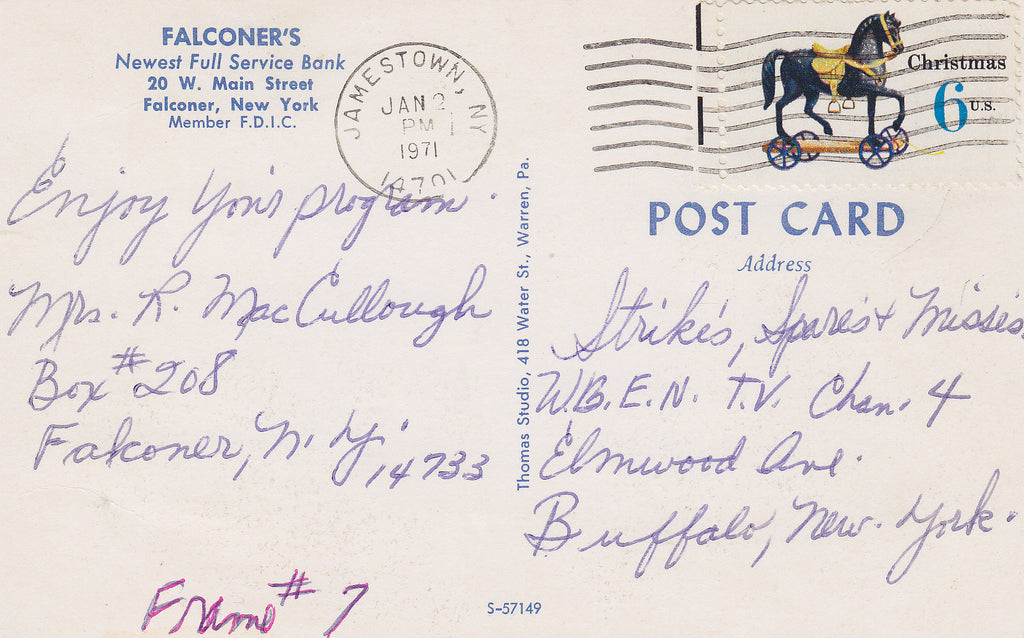 FALCONER'S
Newest Full Service Bank
20 W. Main Street
Falconer, New York
Member F.D.I.C.
JAMESTOWN, NY
JAN 2
PM
1971
14701
Christmas
6 U.S.
Enjoy your program.
Mrs. R. MacCullough
Box #208
Falconer, N.Y.
14733
Frame #7
Thomas Studio, 418 Water St., Warren, Pa.
POST CARD
Address
Strikes, Spares & Misses
W.B.E.N. T.V. Chan. 4
Elmwood Ave.
Buffalo, New York.
S-57149